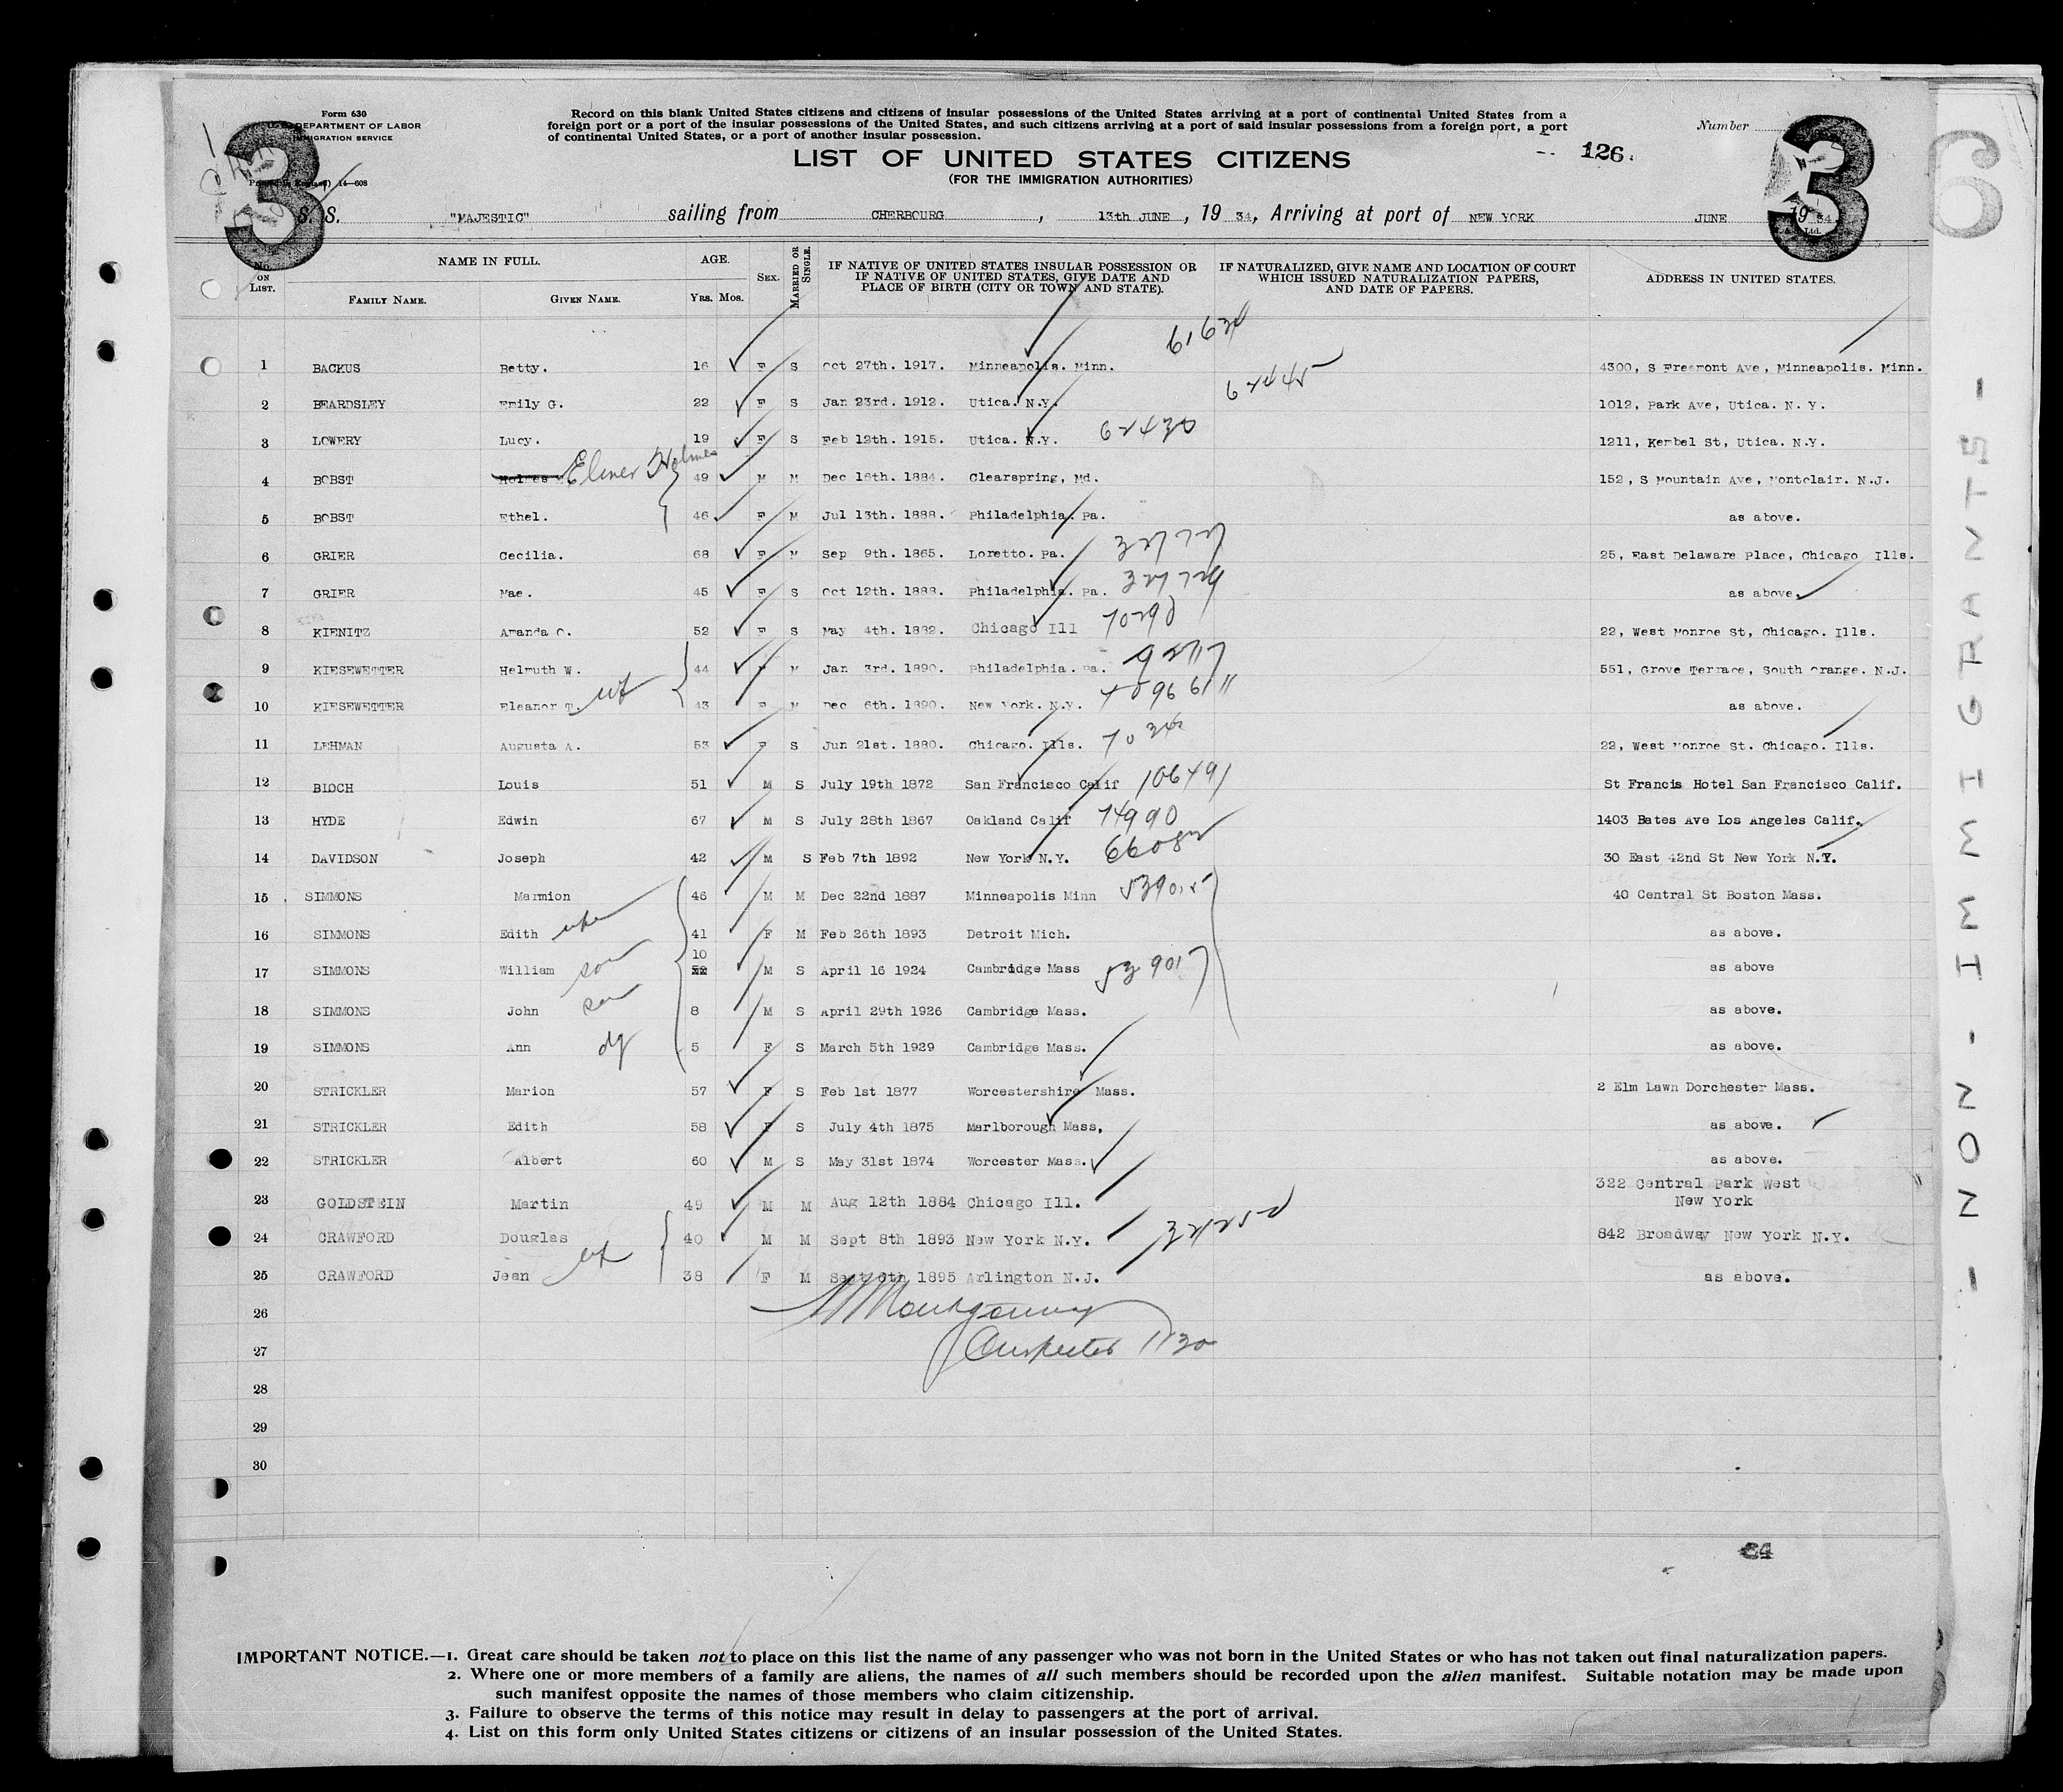 Form 630
DEPARTMENT OF LABOR
IMMIGRATION SERVICE
14—608
Record on this blank United States citizens and citizens of insular possessions of the United States arriving at a port of continental United States from a
foreign port or a port of the insular possessions of the United States, and such citizens arriving at a port of said insular possessions from a foreign port, a port
of continental United States, or a port of another insular possession.
Number
3
3
6
LIST OF UNITED STATES CITIZENS
126.
(FOR THE IMMIGRATION AUTHORITIES)
S. S. "MAJESTIC" sailing from CHERBOURG, 13th JUNE, 19 34, Arriving at port of NEW YORK JUNE 1934
No. ON LIST. NAME IN FULL. AGE. SEX. MARRIED OR SINGLE. IF NATIVE OF UNITED STATES INSULAR POSSESSION OR IF NATIVE OF UNITED STATES, GIVE DATE AND PLACE OF BIRTH (CITY OR TOWN AND STATE). IF NATURALIZED, GIVE NAME AND LOCATION OF COURT WHICH ISSUED NATURALIZATION PAPERS, AND DATE OF PAPERS. ADDRESS IN UNITED STATES.
FAMILY NAME. GIVEN NAME. YRS. MOS.
1 BACKUS Betty. 16 F S Oct 27th. 1917. Minneapolis. Minn. 4300, S Freemont Ave, Minneapolis. Minn.
2 BEARDSLEY Emily G. 22 F S Jan 23rd. 1912. Utica. N.Y. 62445 1012, Park Ave, Utica. N. Y.
3 LOWERY Lucy. 19 F S Feb 12th. 1915. Utica. N.Y. 1211, Kembel St, Utica. N.Y.
4 BOBST Holmes Elmer Holmes 49 M M Dec 16th. 1884. Clearspring, Md. 152, S Mountain Ave, Montclair. N.J.
5 BOBST Ethel. 46 F M Jul 13th. 1888. Philadelphia. Pa. as above.
6 GRIER Cecilia. 68 F M Sep 9th. 1865. Loretto. Pa. 25, East Delaware Place, Chicago Ills.
7 GRIER Mae. 45 F S Oct 12th. 1888. Philadelphia. Pa. as above.
8 KIENITZ Amanda C. 52 F S May 4th. 1882. Chicago Ill 70290 22, West Monroe St, Chicago. Ills.
9 KIESEWETTER Helmuth W. 44 M M Jan 3rd. 1890. Philadelphia. Pa. 551, Grove Terrace, South Orange. N.J.
10 KIESEWETTER Eleanor T. wf 43 F M Dec 6th. 1890. New York. N.Y. as above.
11 LEHMAN Augusta A. 53 F S Jun 21st. 1880. Chicago. Ills. 22, West Monroe St. Chicago. Ills.
12 BLOCH Louis 51 M S July 19th 1872 San Francisco Calif 106491 St Francis Hotel San Francisco Calif.
13 HYDE Edwin 67 M S July 28th 1867 Oakland Calif 74990 1403 Bates Ave Los Angeles Calif.
14 DAVIDSON Joseph 42 M S Feb 7th 1892 New York N.Y. 30 East 42nd St New York N.Y.
15 SIMMONS Marmion 46 M M Dec 22nd 1887 Minneapolis Minn 53901 40 Central St Boston Mass.
16 SIMMONS Edith wife 41 F M Feb 26th 1893 Detroit Mich. as above.
10
17 SIMMONS William son M S April 16 1924 Cambridge Mass as above
18 SIMMONS John son 8 M S April 29th 1926 Cambridge Mass. as above.
19 SIMMONS Ann dg 5 F S March 5th 1929 Cambridge Mass. as above.
20 STRICKLER Marion 57 F S Feb 1st 1877 Worcestershire Mass. 2 Elm Lawn Dorchester Mass.
21 STRICKLER Edith 58 F S July 4th 1875 Marlborough Mass, as above.
22 STRICKLER Albert 60 M S May 31st 1874 Worcester Mass. as above.
23 GOLDSTEIN Martin 49 M M Aug 12th 1884 Chicago Ill. 322 Central Park West
New York
24 CRAWFORD Douglas 40 M M Sept 8th 1893 New York N.Y. 842 Broadway New York N.Y.
25 CRAWFORD Jean wf 38 F M Sept 1895 Arlington N.J. as above.
26 Montgomery
27 Inspector 1130
28
29
30
NON-IMMIGRANTS
IMPORTANT NOTICE.—1. Great care should be taken not to place on this list the name of any passenger who was not born in the United States or who has not taken out final naturalization papers.
2. Where one or more members of a family are aliens, the names of all such members should be recorded upon the alien manifest. Suitable notation may be made upon
such manifest opposite the names of those members who claim citizenship.
3. Failure to observe the terms of this notice may result in delay to passengers at the port of arrival.
4. List on this form only United States citizens or citizens of an insular possession of the United States.